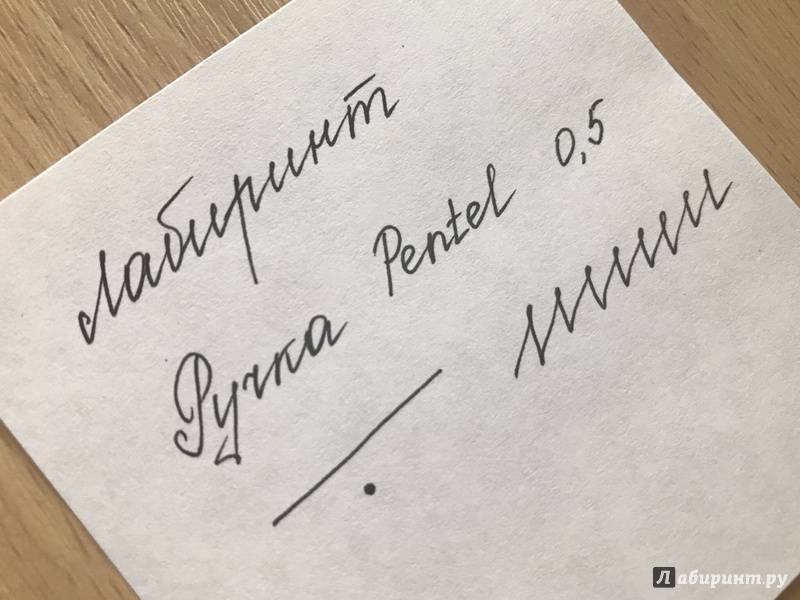 Лабиринт
Ручка Pentel 0,5
Лабиринт.ру